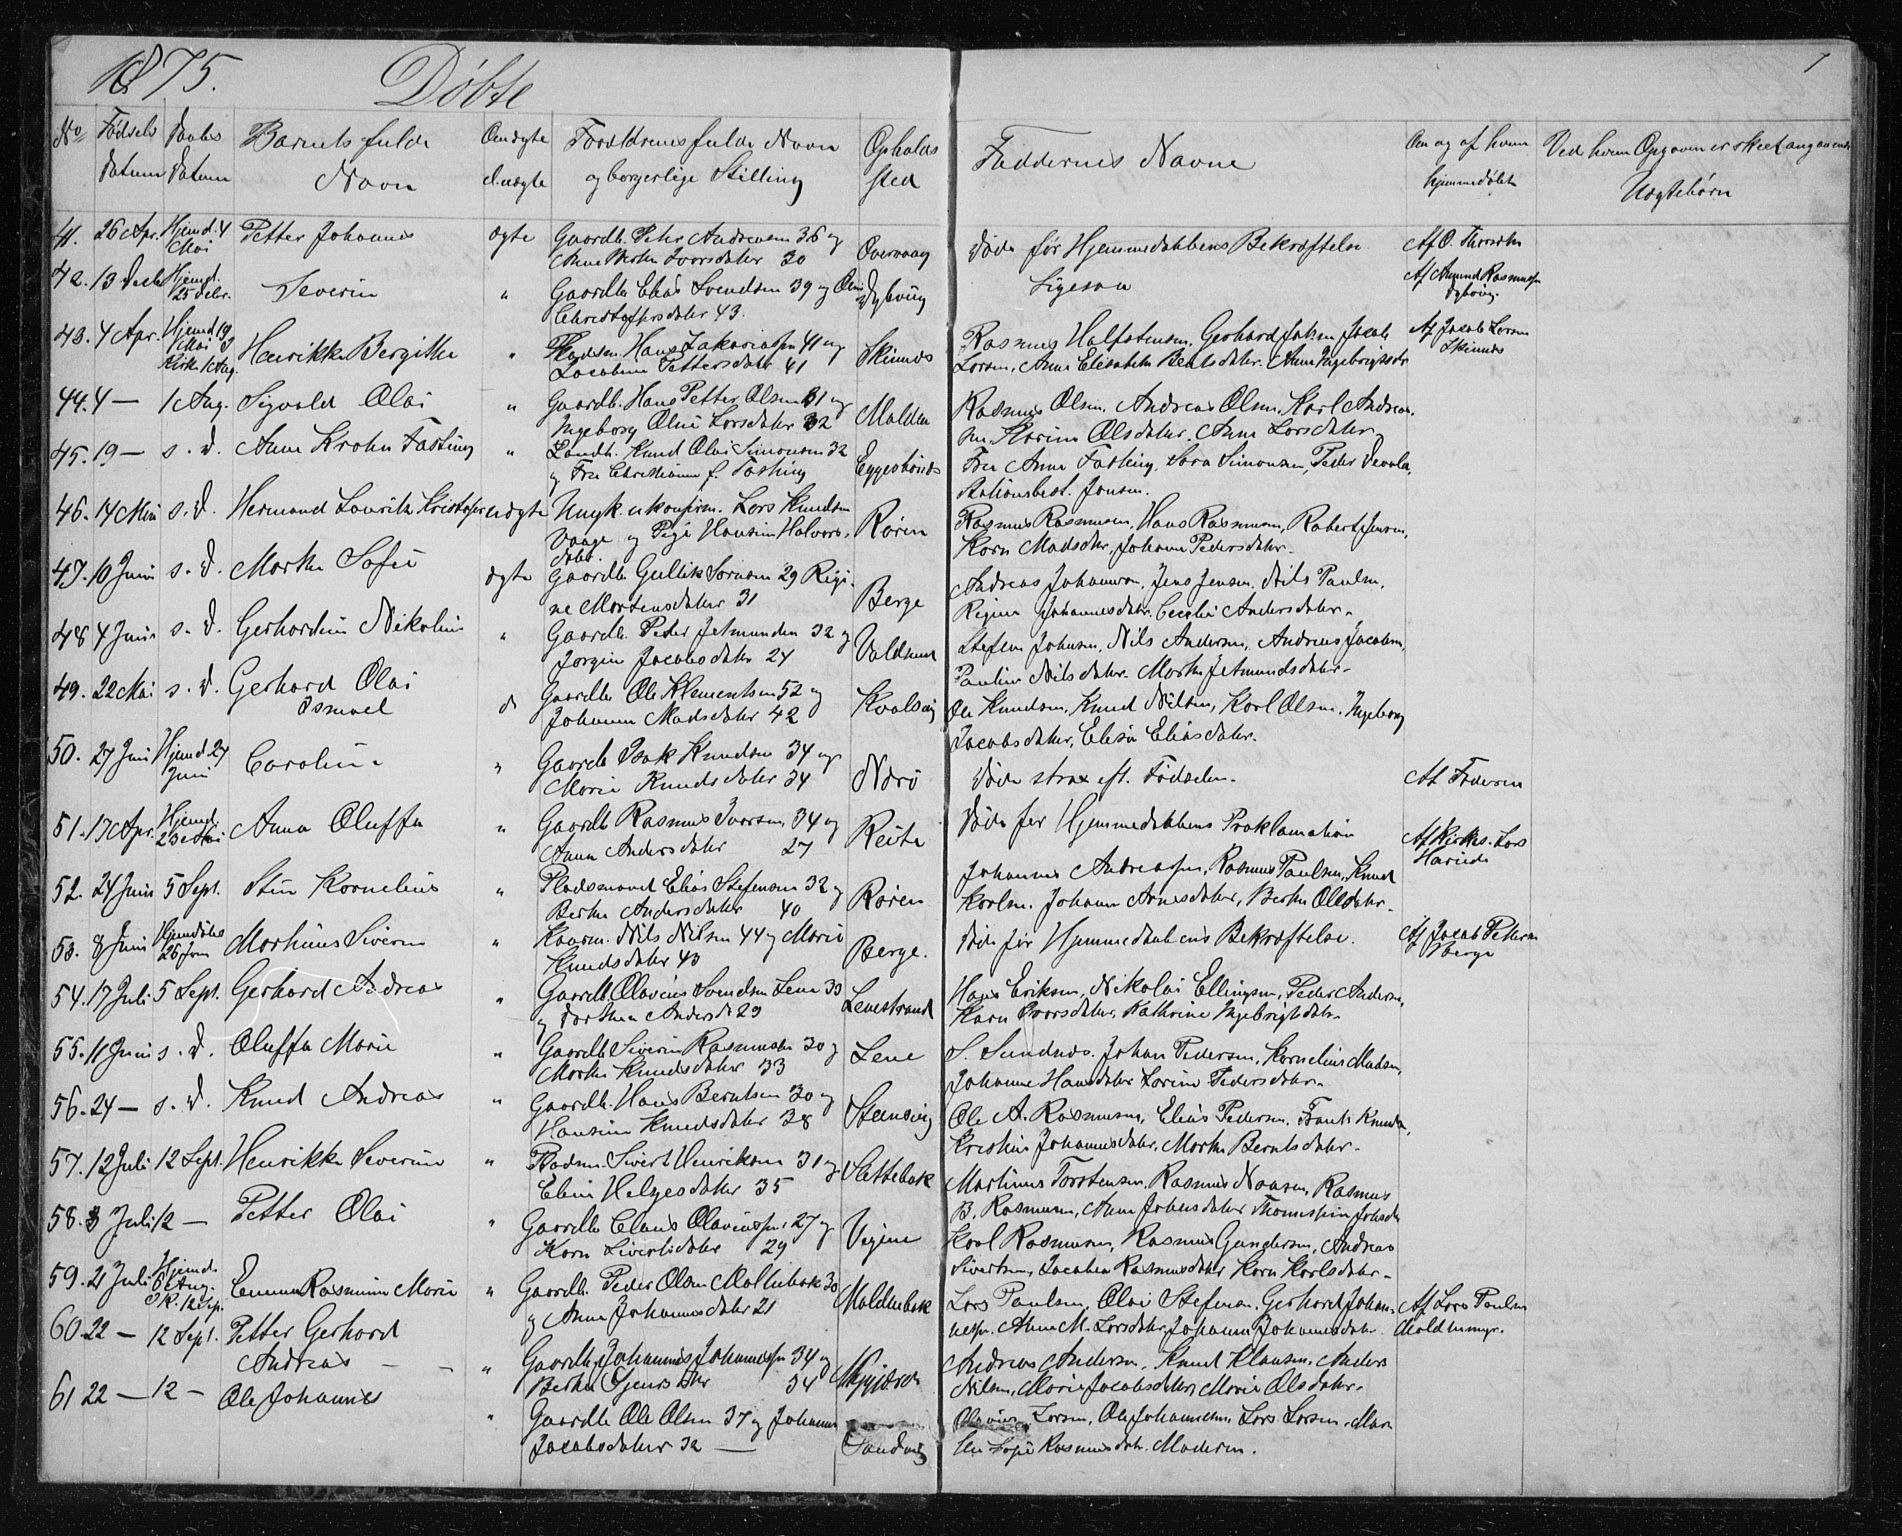 1875. Døbte 7
No. Fødsels Datum Daabs Datum Barnets fulde Navn Om ægte el. uægte Forældrenes fulde Navn og borgerlige Stilling Opholds sted Faddernes Navne Om og af hvem hjemmedøbt Ved hvem Opgaven er skeet angaaende Uægtebørn
41. 26 Apr. Hjemd. 4 Mai Petter Johannes ægte Gaardb. Peter Andreasen 36 og
Iversdater 30 Døde før Hjemmedaabens Bekræftelse. Af O.
42. 13 Hjemd. 25 Severin " Gaardb. Elias Svendsen 39 og
Christophersdater 43. Ligesaa Af Amund Rasmussen
43. 4 Apr. Hjemd 19 Mai Kirke 1 Aug. Henrikke Bergithe " Pladsm. Hans Zakariassen 41 og
Jacobine Pettersdater 41 Skinnes Rasmus Halfstensen, Gerhard Jacob
Larsen, Anne Elisabeth Bentsdater. Af Jacob Larsen Skinnes
44. 4 — 1 Aug. Sigvald Olai " Gaardb. Hans Petter Olsen 31 og
Ingeborg Oline Larsdater 32 Malden Rasmus Olsen, Andreas Olsen, Karl Andrea-
sen, Karine Olsdater, Anne Larsdater
45. 19 — s. D. Anne Krohn Fasting " Landh. Knud Olai Simonsen 32
og Fru Christianne f. Fasting Eggesbønes Fru Anne Fasting, Sara Simonsen, Peder
Stationsbest. Jensen.
46. 14 Mai s. D. Hermand Laurits Kristofer uægte Ungk. Lars Knudsen
Vaage og Pige Hansine Halvors-
dater Røren Rasmus Rasmussen, Hans Rasmussen, Robert Jensen,
Karen Madsdtr, Johanne Pedersdater.
47. 10 Juni s. D. Marthe Sofie ægte Gaardb. Gullik Sørensen 29 Regi-
ne Mortensdater 31 Berge Andreas Johannesen, Jens Jensen, Nils Paulsen,
Regine Johannesdater, Cecilie Andersdater.
48 4 Juni s. D. Gerhardine Nikoline " Gaardb. Peder Jetmundsen 32 og
Jorgine Jacobsdater 24 Stefen Johnsen, Nils Andersen, Andreas Jacobsen,
Pauline Nilsdater, Marthe Jetmundsdater.
49. 22 Mai s. D. Gerhard Olai
Ismael Gaardb. Ole Klementsen 52 og
Johanne Madsdater 42 Kvalsvig Ole Knudsen, Knud Nilsen, Karl Olsen, Ingeborg
Jacobsdater, Elisa Eliasdater.
50. 27 Juni Hjemd 27 Juni Caroline " Gaardb. Isak Knudsen 34 og
Marie Knudsdater 34 Nærø Døde strax eft. Fødselen. Af Faderen
51. 17 Apr. Hjemd. 23 Mai Anna Oluffa " Gaardb. Rasmus Iversen 34 og
Anne Andersdater 27 Reite Døde før Hjemmedaabens Proklamation Af Kirkes. Lars
52. 24 Juni 5 Sept. Stine Kornelius " Pladsmand Elias Stefensen 32 og
Berthe Andersdater 40 Røren Johannes Andreassen, Rasmus Paulsen, Knud
Karlsen, Johanne Arnesdater, Berthe Olsdater.
53. 8 Juni Hjemdøbt 26 Juni Marthinus Siverin " Nils Nilsen 44 og Marie
Knudsdater 43 Berge. Døde før Hjemmedaabens Bekræftelse. Af Jacob Pettersen Berge
54. 17 Juli 5 Sept. Gerhard Andreas " Gaardb. Olavius Svendsen Lene 33
og Dorthea Andersd. 29 Lenestrand Hans Eriksen, Nikolai Ellingsen, Peder Andersen,
Karen Iversdater, Kathrine Ingebrigtsdater.
55. 11 Juni s. D. Oluffa Marie " Gaardb. Siverin Rasmussen 30 og
Marthe Knudsdater 33 Lene S. Sundnes, Johan Pedersen, Kornelius Madsen,
Johanne Hansdater, Lorine Pedersdater.
56. 24 — s. D. Knud Andreas " Gaardb. Hans Berntsen 30 og
Hansine Knudsdater 38 Ole A. Rasmussen, Elias Pedersen, Frants Knudsen,
Kristine Johannesdater, Marthe Berntsdater.
57. 12 Juli 12 Sept. Henrikke Severine " Pladsm. Sivert Henriksen 31 og
Eline Helgesdater 35 Slettebak Martinus Torstensen, Rasmus Rasmus
B. Rasmussen, Anne Johnsdater
58. 3 Juli 12 — Petter Olai " Gaardb. Claus Olaviussen 27 og
Karen Sivertsdater 29 Karl Rasmussen, Rasmus Gundersen, Andreas
Sivertsen, Jacobea Rasmusdater, Karen Karlsdater.
59. 21 Juli Hjemd. 8 Aug. i K. 12 Sep. Emma Rasmine Marie " Gaardb. Peder Olsen Moldebak 30
og Anne Johannesdater 21 Moldebak Lars Paulsen, Olai Stefensen, Gerhard Johan-
nesen, Anne M. Larsdater, Johanne Johannesdater. Af Lars Paulsen
60. 22 — 12 Sept. Petter Gerhard
Andreas — — " Gaardb. Johannes Johannessen 34 og
Berthe 34 Andreas Andersen, Knud Klausen, Anders
Nilsen, Marie Jacobsdater, Marie Olsdater.
61 22 — 12 — Ole Johannes
" Gaardb. Ole Olsen 37 og Johanne
Jacobsdater 32 — Sandvig Larsen, Ole Johannesen, Lars Larsen,
Rasmusdatr. Moderen.